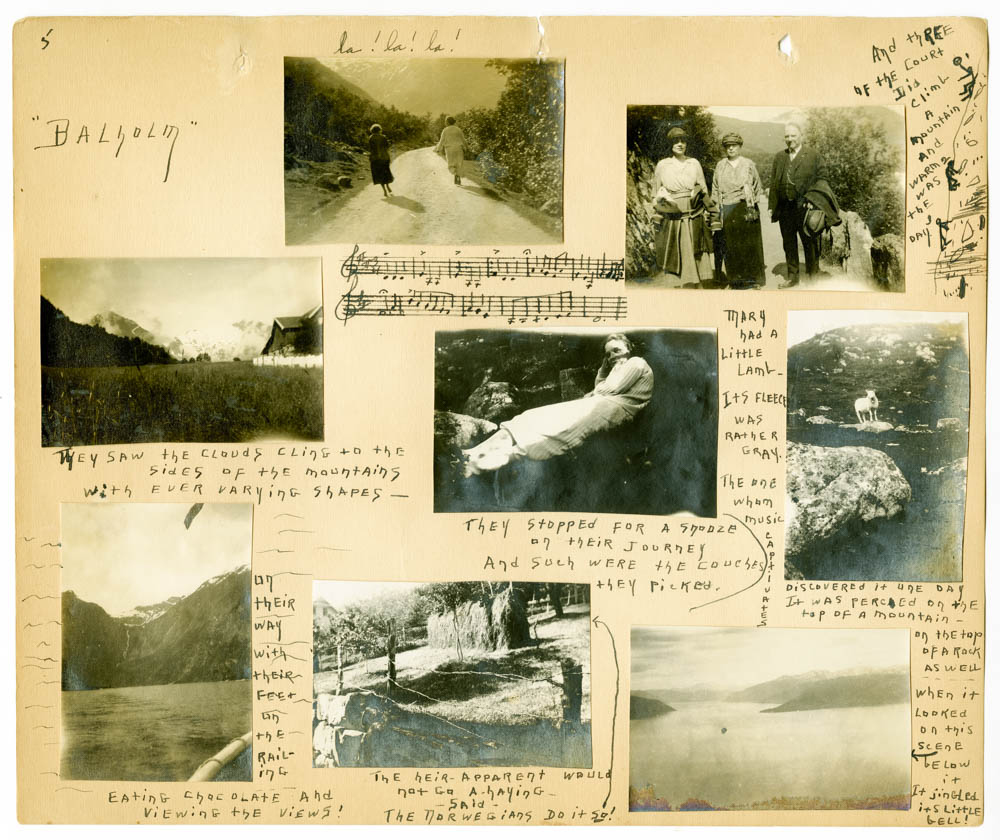 5
la! la! la!
"BALHOLM"
And thREE
OF the COURT
DID
CLIMB
A
MOUNTAIN
AND
WARM
WAS
the
DAY
They SAW the CLOUDS CLING to the
SIDES OF the MOUNTAINS
With EVER VARYING SHAPES —
They Stopped FOR A SNOOZE
on their JOURNEY
And Such WERE the COUCHES
they PICKED.
MARY
had A
Little
LAMB-
ItS FLEECE
WAS
RATHER
GRAY.
The one
whom
music
CAPTIVATES
DISCOVERED it ONE DAY
It WAS PERCHED on the
top OF A MOUNTAIN -
on the top
OF A ROCK
AS WELL
When it
LOOKED
on this
SCENE
BELOW
it
It JINGLED
itS Little
BELL!
on
their
WAY
With
their
FEEt
on
the
RAIL-
ing
EATING CHOCOLATE And
VIEWING the VIEWS!
The heir-Apparent WOULD
not Go A-hAYING
- SAID -
The NORWEGIANS Do it SO!